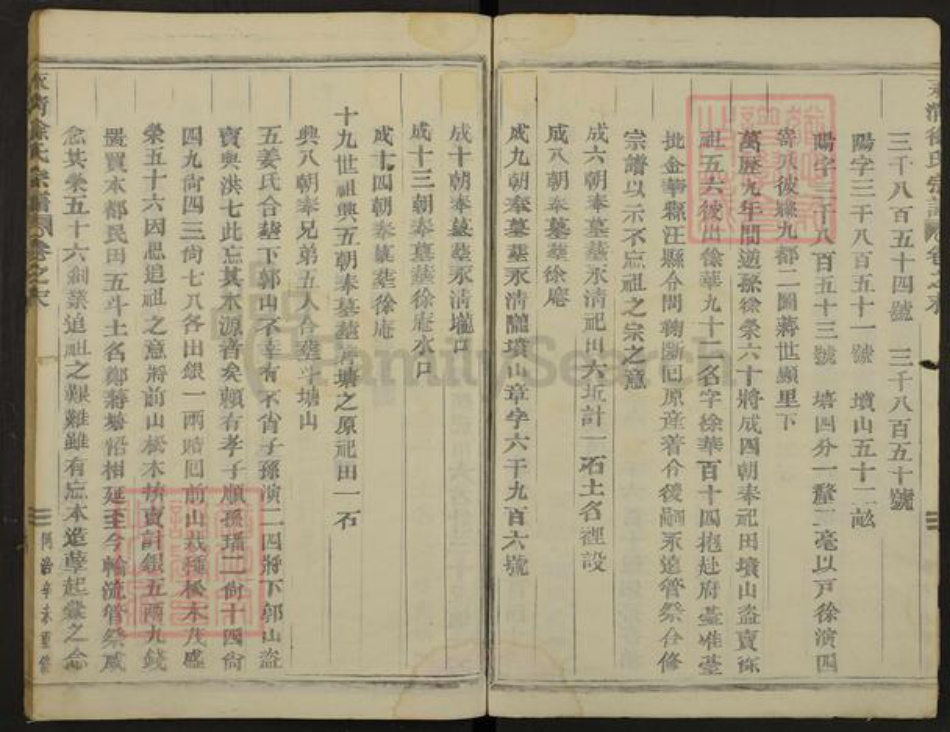 永清徐氏宗譜卷之末
三千八百五十四號　三千八百五十號
陽字三千八百五十一號　墳山五十二畝
陽字三千八百五十三號　塘四分一釐二毫以戸徐演四
寄爪彼縣九都二圖蔣世顯里下
萬歷九年間逆孫徐榮六十將成四朝奉祀田墳山盗賣孫
祖五六彼出徐華九十二名字徐華百十四抱赴府臺准臺
批金華縣汪縣分問鞫斷囘原產着令後嗣永遠管祭合修
宗譜以示不忘祖之宗之意
成六朝奉墓塟永清祀田六坵計一石土名裡設
成八朝奉墓塟徐庵
成九朝奉墓塟永清隴墳山章字六千九百六號
成十朝奉墓塟永清壠口
成十三朝奉墓塟徐庵水口
成十四朝奉墓塟徐庵
十九世祖興五朝奉墓塟斗塘之原祀田一石
興八朝奉兄弟五人合塟斗塘山
五姜氏合塟下郭山不幸有不肖子孫演二四將下郭山盗
賣與洪七此忘其本源者矣賴有孝子順孫璠二尙十四尙
四九尙四三尙七八各出銀一兩贖囘前山栽種松木茂盛
榮五十六因思追祖之意將前山松木拚賣計銀五兩九錢
置買本都民田五斗土名鄭蔣塘沿相延至今輪流管祭咸
念其榮五十六創業追祖之艱難雖有忘本造孽起彙之念
永清徐氏宗譜卷之末
同治辛未重修
FamilySearch